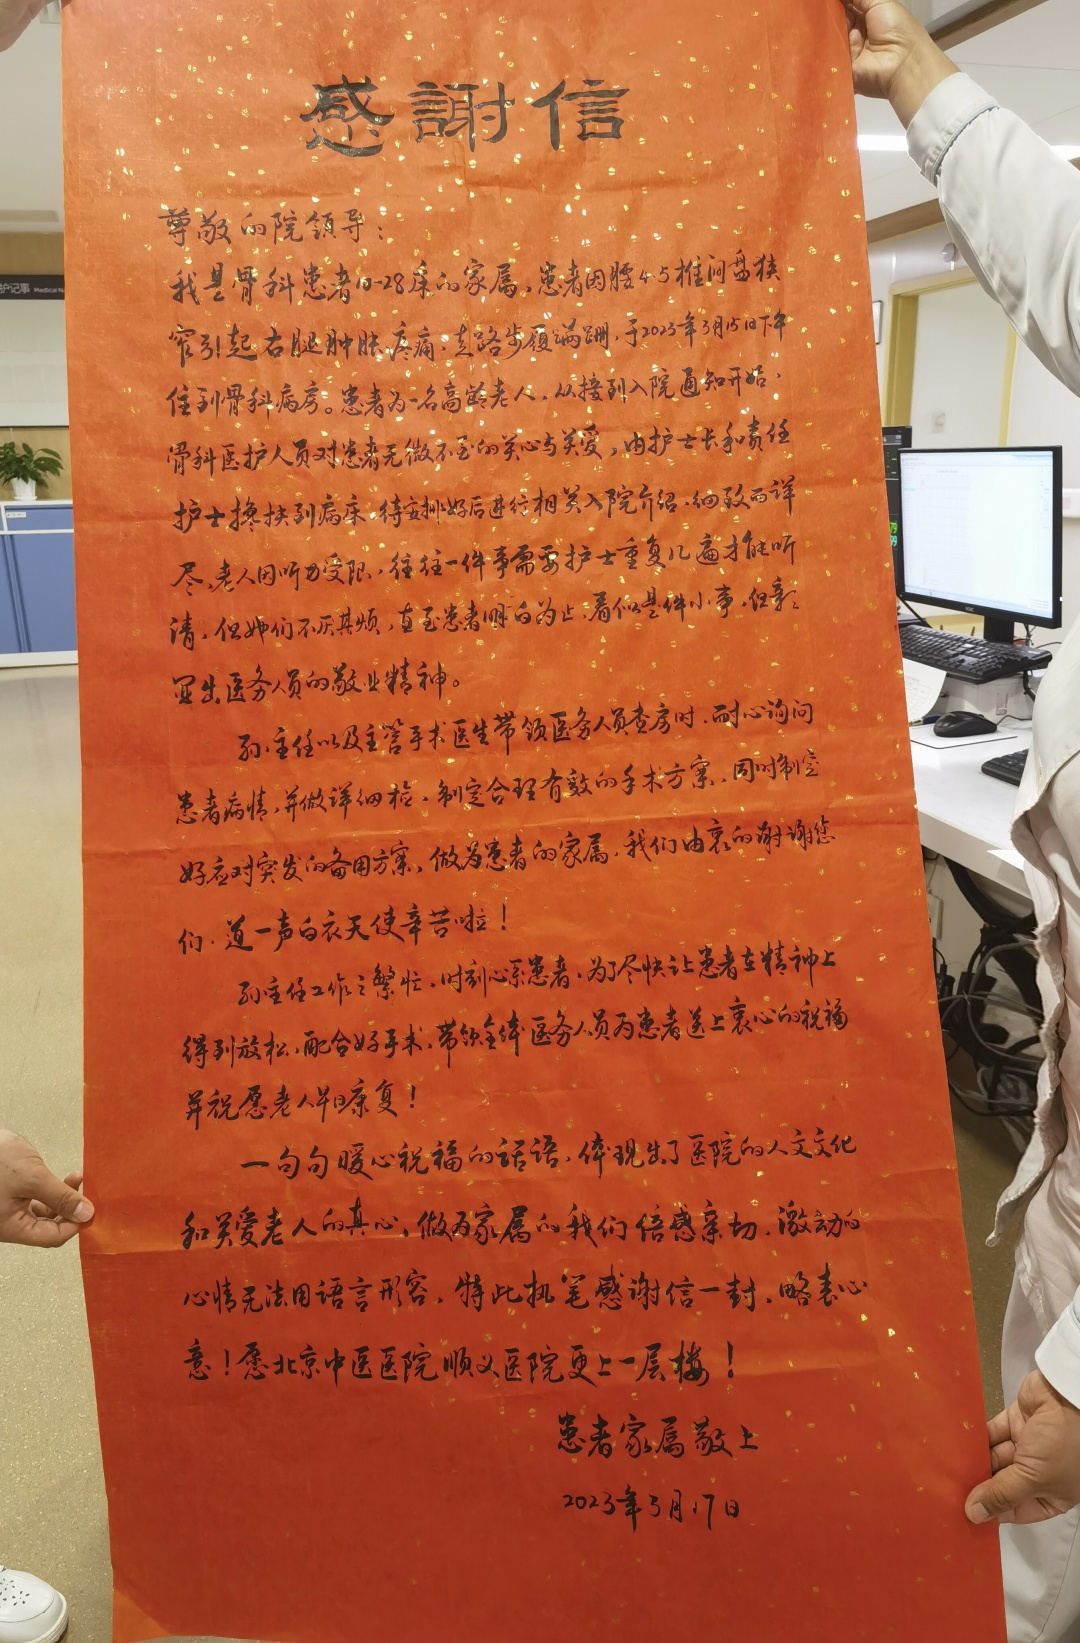 感謝信
尊敬的院领导：
我是骨科患者10-28床的家属，患者因腰4-5椎间盘狭
窄引起右腿肿胀疼痛，走路步履蹒跚，于2023年5月15日下午
住到骨科病房。患者为一名高龄老人，从接到入院通知开始，
骨科医护人员对患者无微不至的关心与关爱，由护士长和责任
护士搀扶到病床，待安排好后进行相关入院介绍，细致而详
尽，老人因听力受限，往往一件事需要护士重复几遍才能听
清，但她们不厌其烦，直至患者明白为止，看似是件小事，但彰
显出医务人员的敬业精神。
孙主任以及主管手术医生带领医务人员查房时，耐心询问
患者病情，并做详细检，制定合理有效的手术方案，同时制定
好应对突发的备用方案，做为患者的家属，我们由衷的谢谢您
们，道一声白衣天使辛苦啦！
孙主任工作之繁忙，时刻心系患者，为了尽快让患者在精神上
得到放松，配合好手术，带领全体医务人员为患者送上衷心的祝福
并祝愿老人早日康复！
一句句暖心祝福的话语，体现出了医院的人文文化
和关爱老人的真心，做为家属的我们倍感亲切，激动的
心情无法用语言形容，特此执笔感谢信一封，略表心
意！愿北京中医医院顺义医院更上一层楼！
患者家属敬上
2023年5月17日
护记事